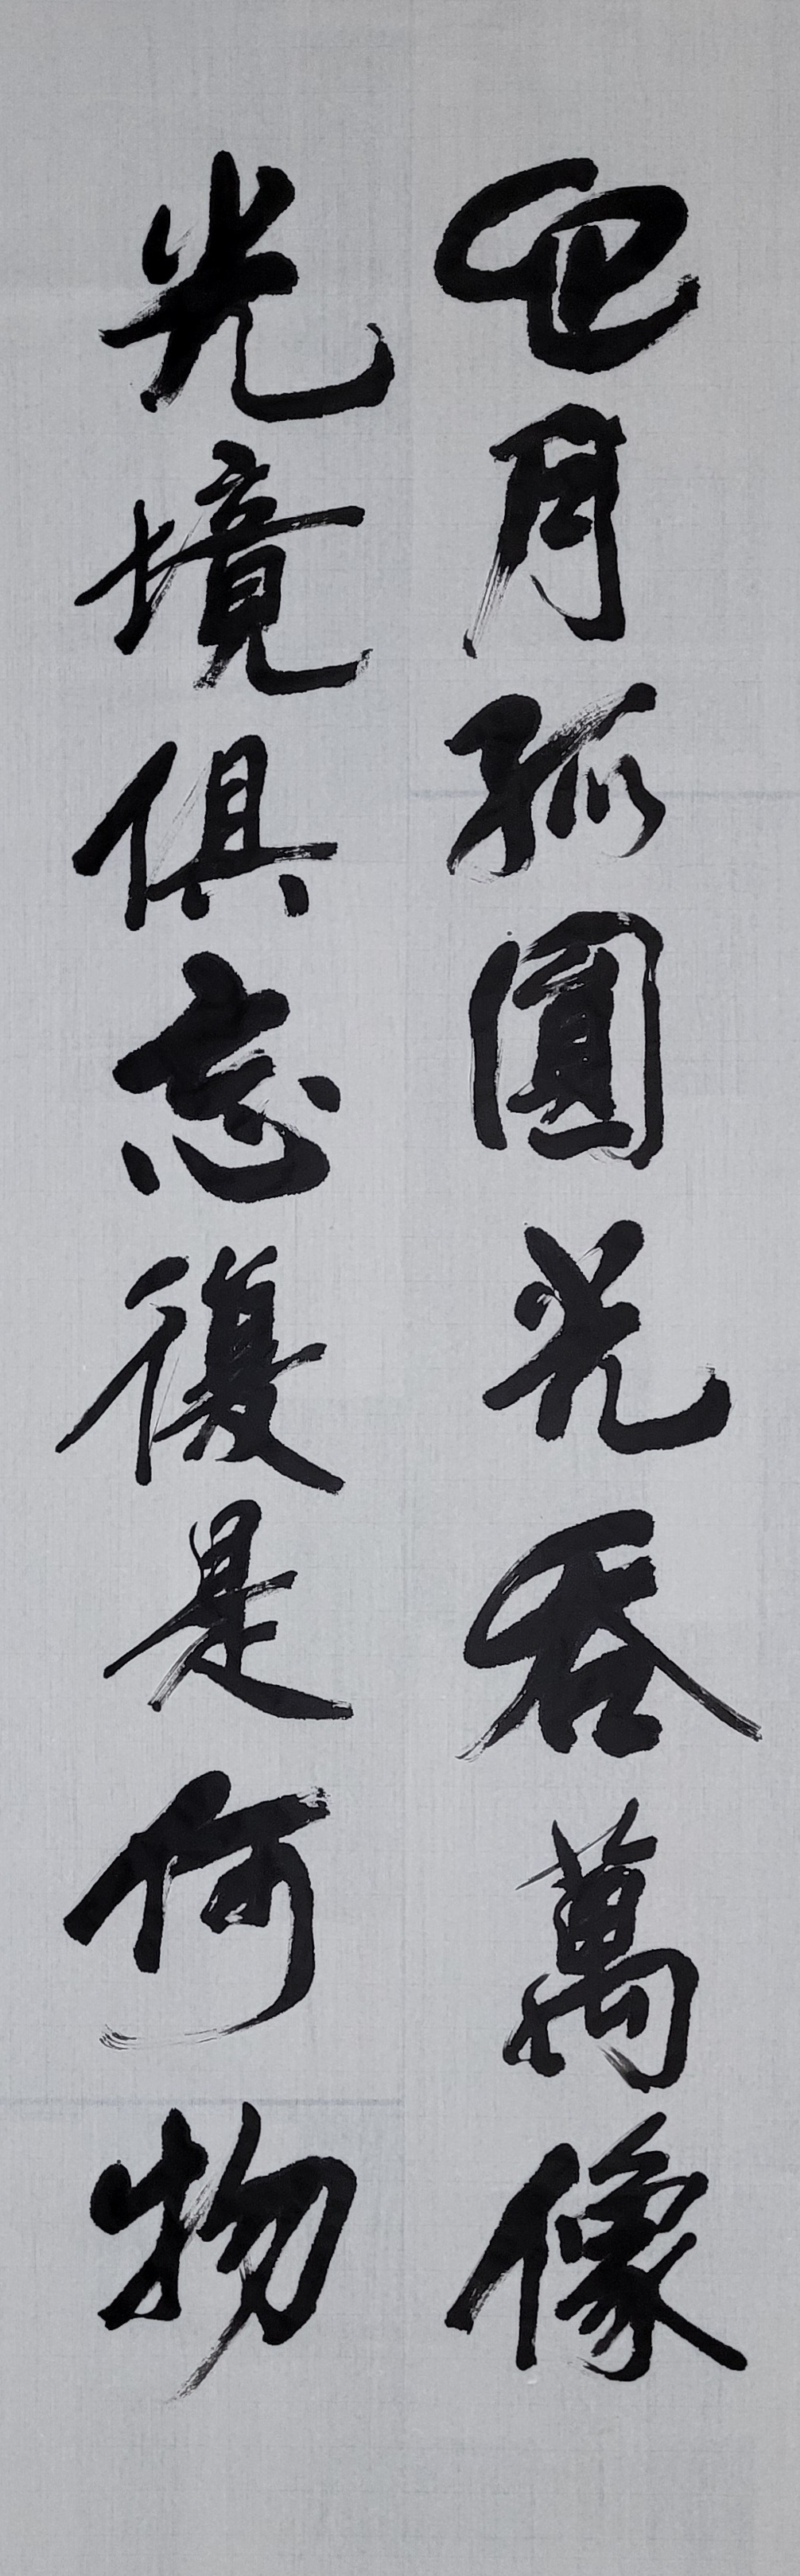 心月孤圓光吞萬像
光境俱忘復是何物